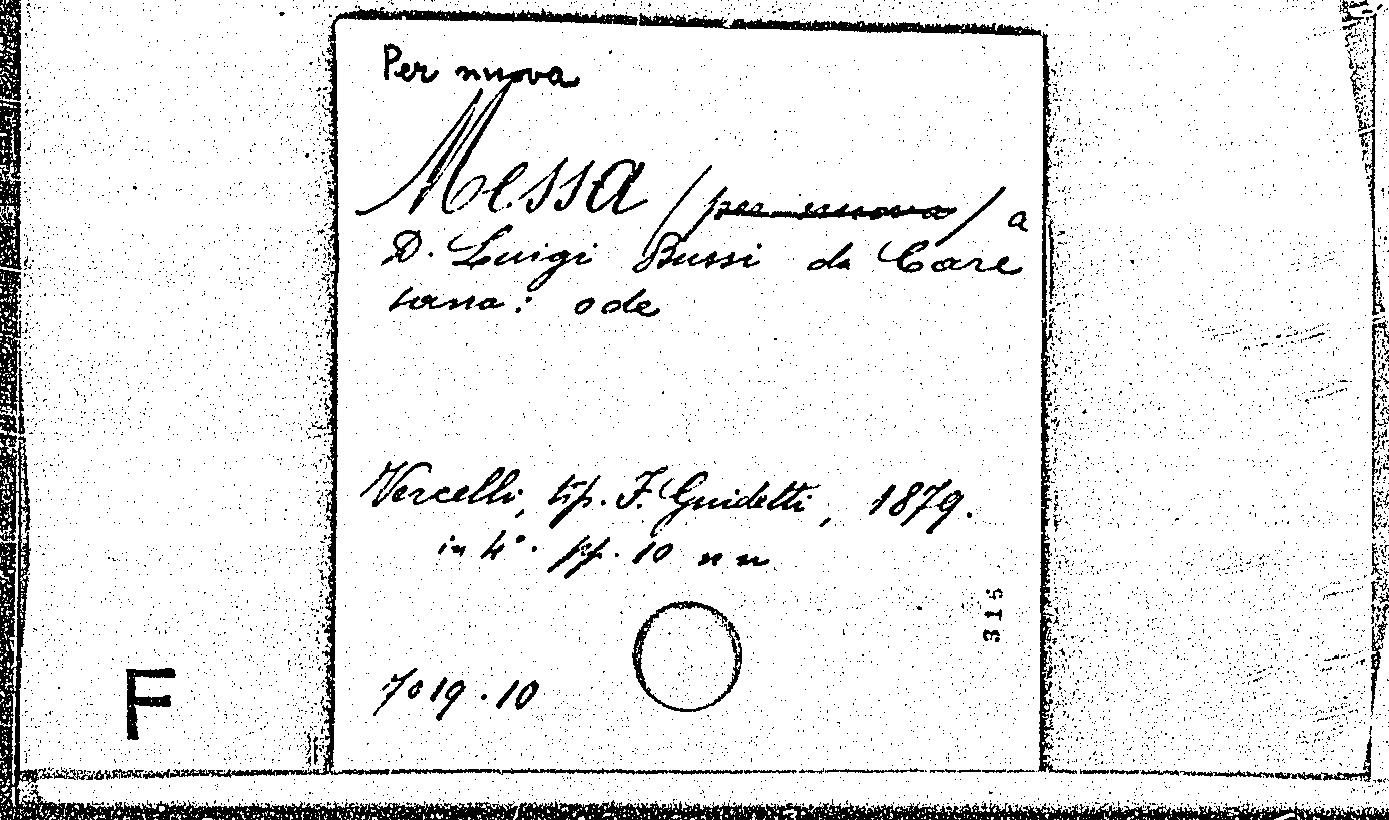 Per nuova
Messa / per nuova / a
D. Luigi Bussi da Care
sana: ode
Vercelli, tip. F. Guidetti, 1879.
in 4°. pp. 10 nn
315
7019.10
F